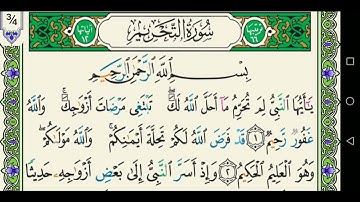 3/4
ترتيبها ٦٦
سُورَةُ التَّحْرِيمِ
آياتها ١٢
بِسْمِ اللَّهِ الرَّحْمَٰنِ الرَّحِيمِ
يَٰٓأَيُّهَا النَّبِيُّ لِمَ تُحَرِّمُ مَآ أَحَلَّ اللَّهُ لَكَ ۖ تَبْتَغِى مَرْضَاتَ أَزْوَٰجِكَ ۚ وَاللَّهُ
غَفُورٌ رَّحِيمٌ ١ قَدْ فَرَضَ اللَّهُ لَكُمْ تَحِلَّةَ أَيْمَٰنِكُمْ ۚ وَاللَّهُ مَوْلَىٰكُمْ ۖ
وَهُوَ الْعَلِيمُ الْحَكِيمُ ٢ وَإِذْ أَسَرَّ النَّبِيُّ إِلَىٰ بَعْضِ أَزْوَٰجِهِۦ حَدِيثًا